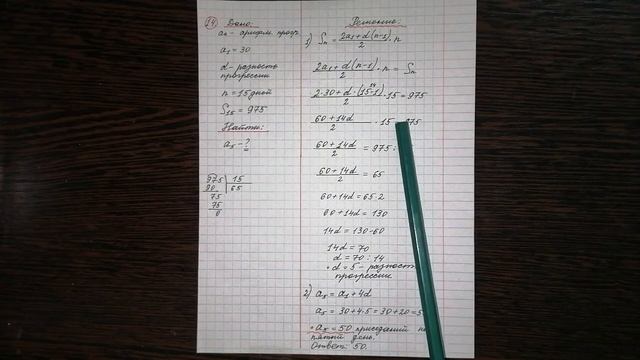 14 Дано:
an - арифм. прогр.
a1 = 30
d - разность
прогрессии
n = 15 дней
S15 = 975
Найти:
a5 - ?
975 | 15
90 | 65
75
75
0
Решение:
1) Sn = 2a1 + d(n-1) / 2 · n
2a1 + d(n-1) / 2 · n = Sn
2·30 + d·(15-1) / 2 · 15 = 975
14
60 + 14d / 2 · 15 = 975
60 + 14d / 2 = 975 :
60 + 14d / 2 = 65
60 + 14d = 65·2
60 + 14d = 130
14d = 130 - 60
14d = 70
d = 70 : 14
d = 5 - разность
прогрессии
2) a5 = a1 + 4d
a5 = 30 + 4·5 = 30 + 20 = 5
a5 = 50 приседаний
пятый день.
Ответ: 50.